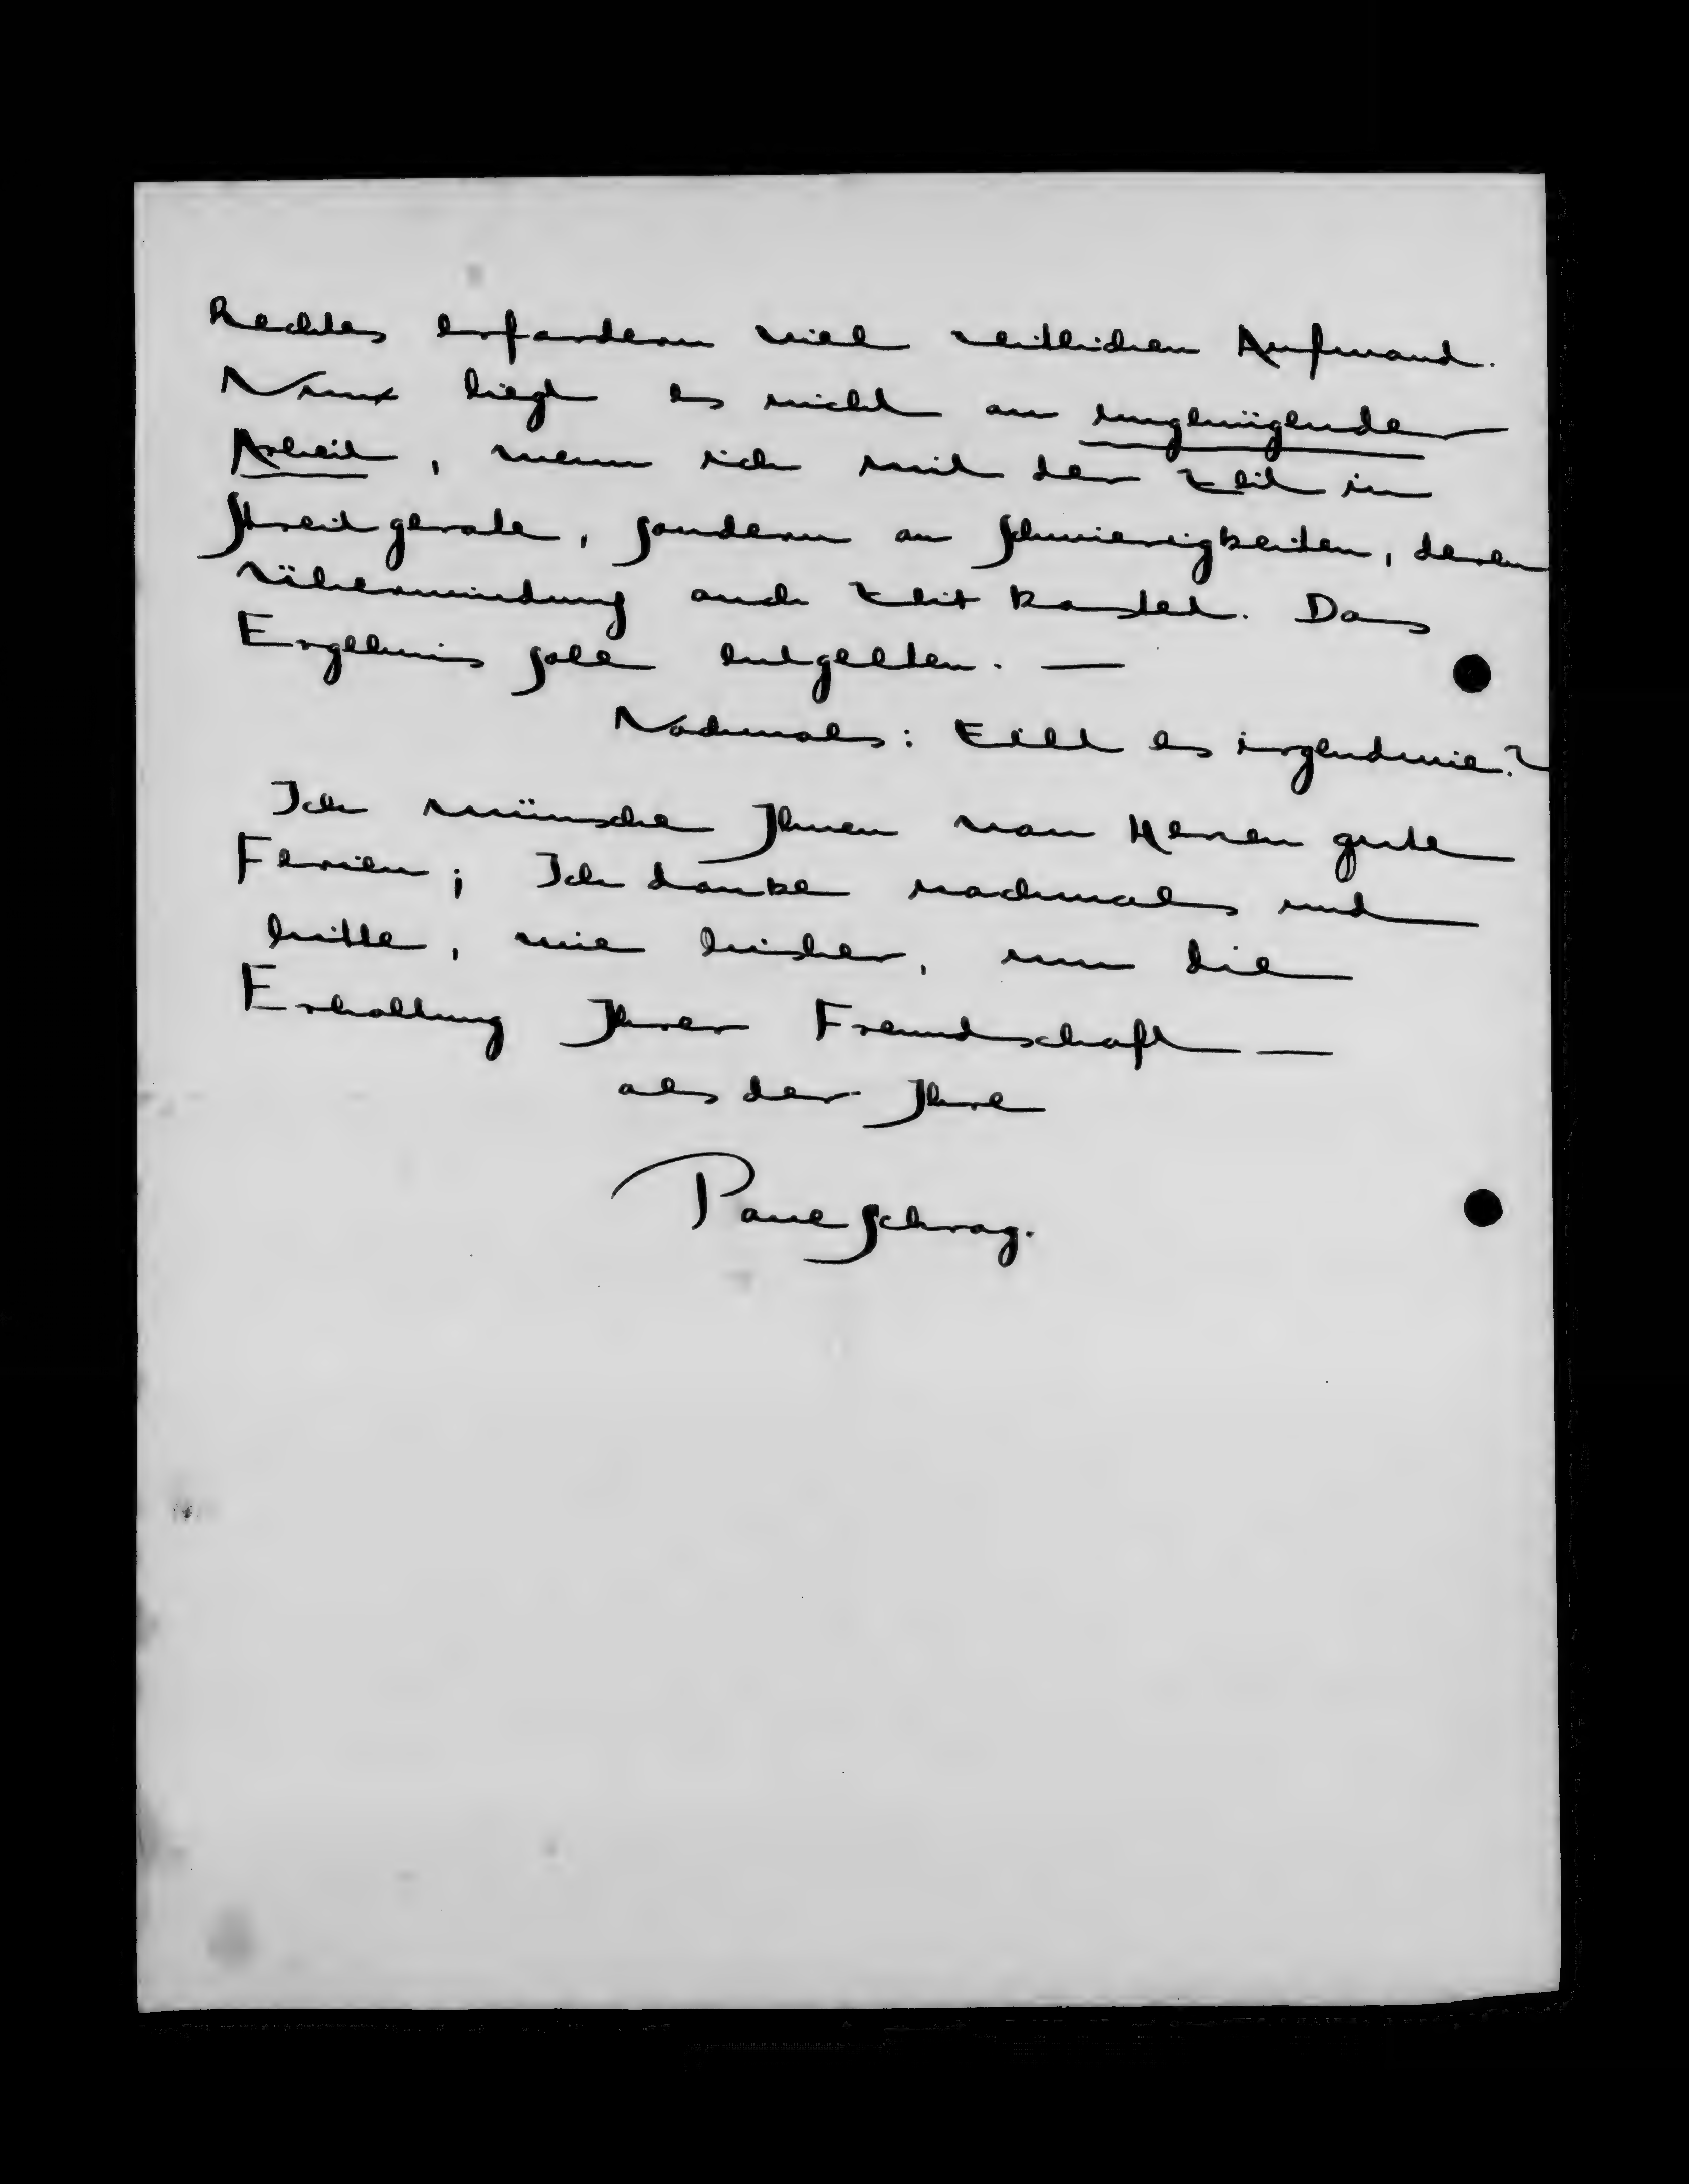 Rechtes erfordern viel zeitlichen Aufwand.
liegt es nicht an ungenügender
Arbeit, wenn ich mit der Zeit in
Streit gerate, sondern an Schwierigkeiten, deren
Überwindung auch Zeit kostet. Das
Ergebnis soll entgelten. —
Nochmals: Eilt es irgendwie?
Ich wünsche Ihnen von Herzen gute
Ferien; Ich danke nochmals und
bitte, wie bisher, um die
Erhaltung Ihrer Freundschaft —
als der Ihre
Paul Schrag.